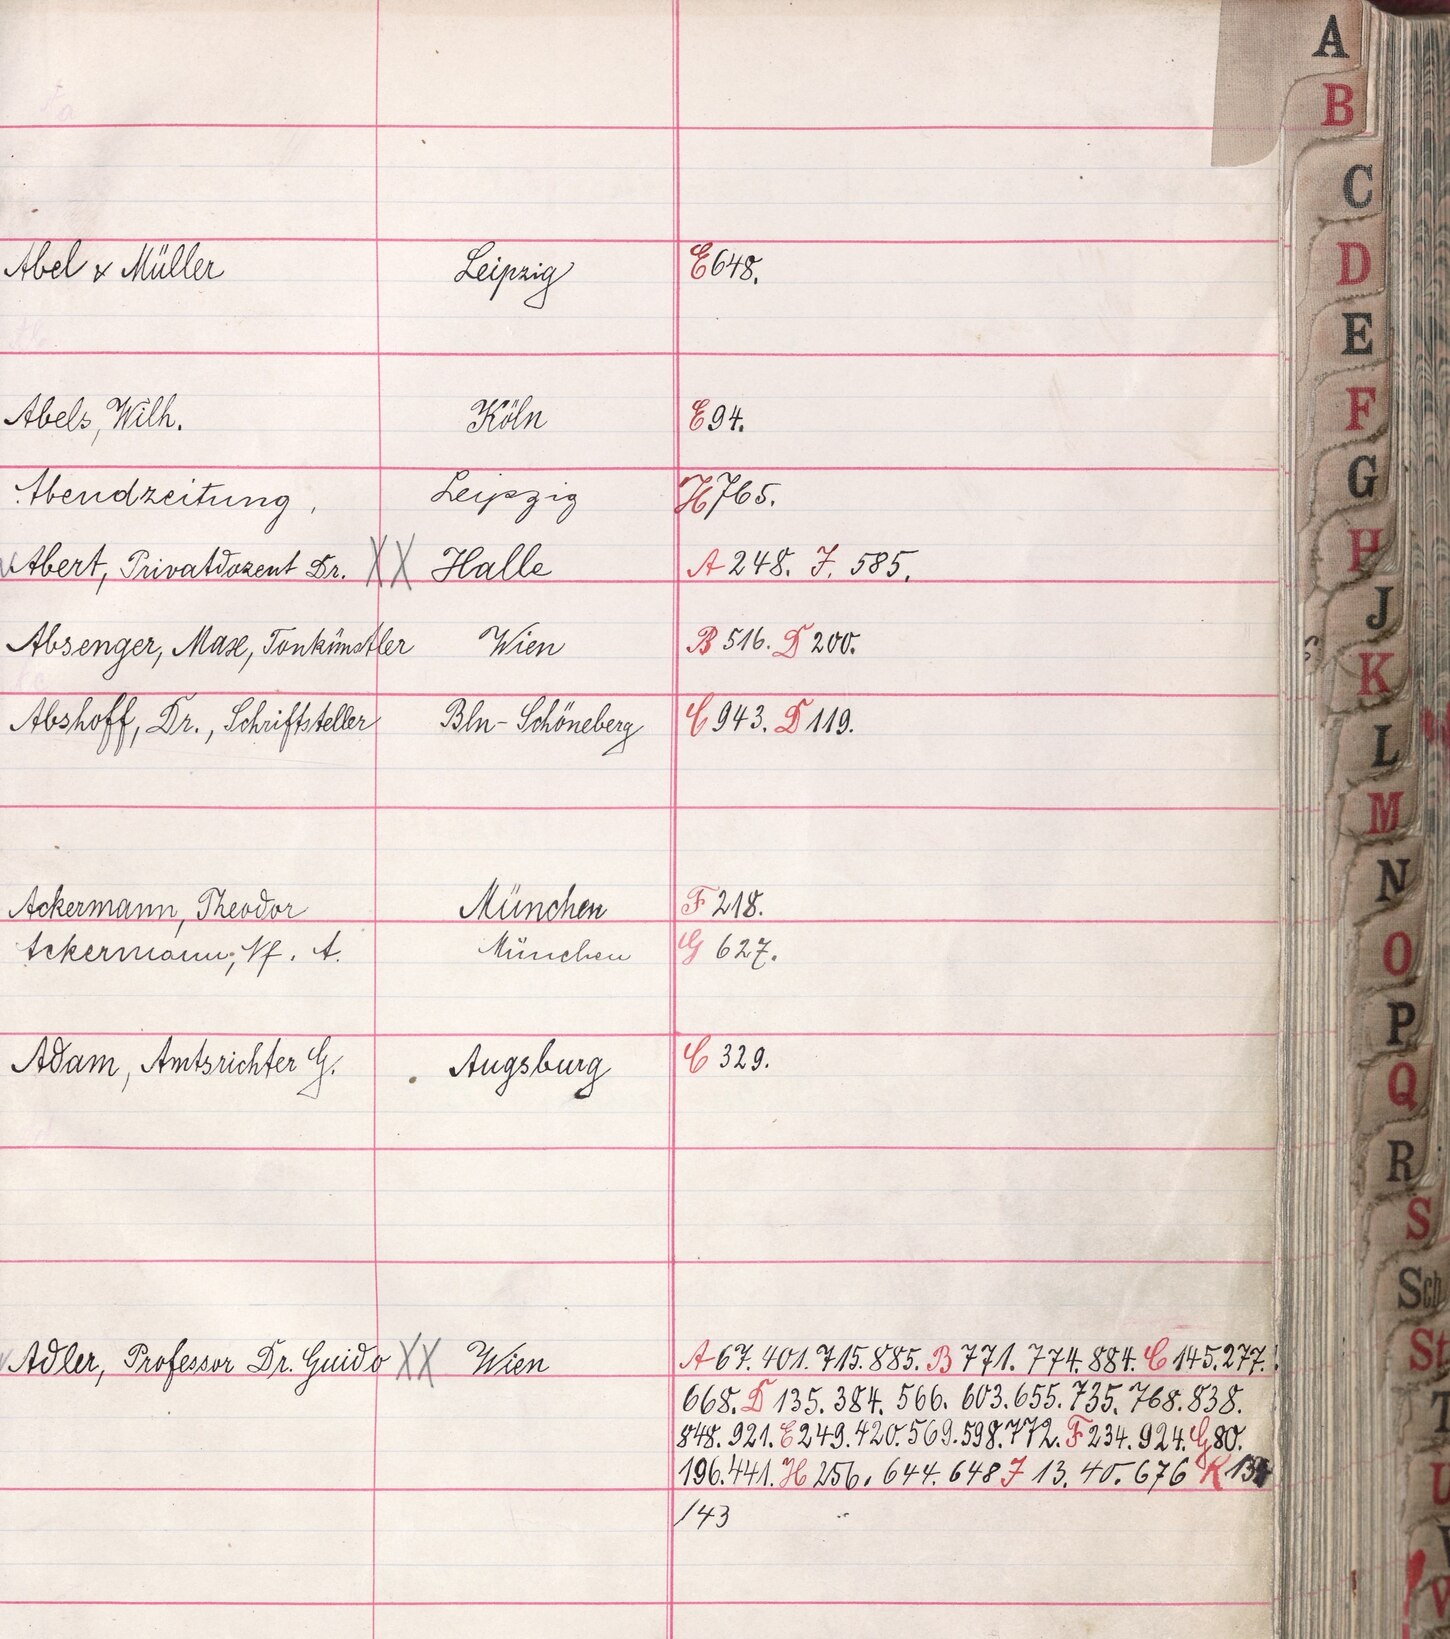 Abel & Müller Leipzig E 648.
Abels, Wilh. Köln E 94.
Abendzeitung, Leipzig H 765.
Abert, Privatdozent Dr. XX Halle A 248. J. 585.
Absenger, Max, Tonkünstler Wien B 516. D 200.
Abshoff, Dr., Schriftsteller Bln-Schöneberg C 943. D 119.
Ackermann, Theodor München F 218.
Ackermann, Nf. A. München G 627.
Adam, Amtsrichter G. Augsburg C 329.
Adler, Professor Dr. Guido XX Wien A 67. 401. 715. 885. B 771. 774. 884. C 145. 277.
668. D 135. 384. 566. 603. 655. 735. 768. 838.
848. 921. E 249. 420. 569. 598. 772. F 234. 924. G 80.
196. 441. H 256. 644. 648 J 13. 40. 676 K
143
A
B
C
D
E
F
G
H
J
K
L
M
N
O
P
Q
R
S
Sch
St
T
U
V
W